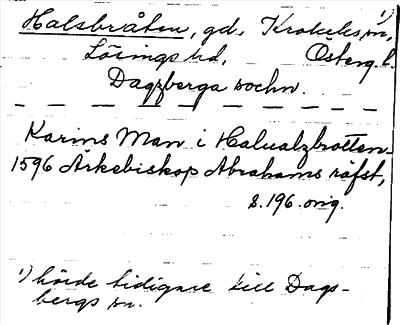 1)
Halsbråten, gd, Krokeks sn,
Lösings hd, Österg. l.
Dagzberga sochn.
Karins Man i Halualzbrotten
1596 Ärkebiskop Abrahams räfst,
s. 196. orig.
1) hörde tidigare till Dags-
bergs sn.